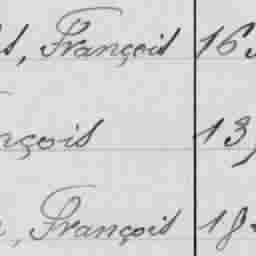 s, François 163
nçois 13,
, François 18